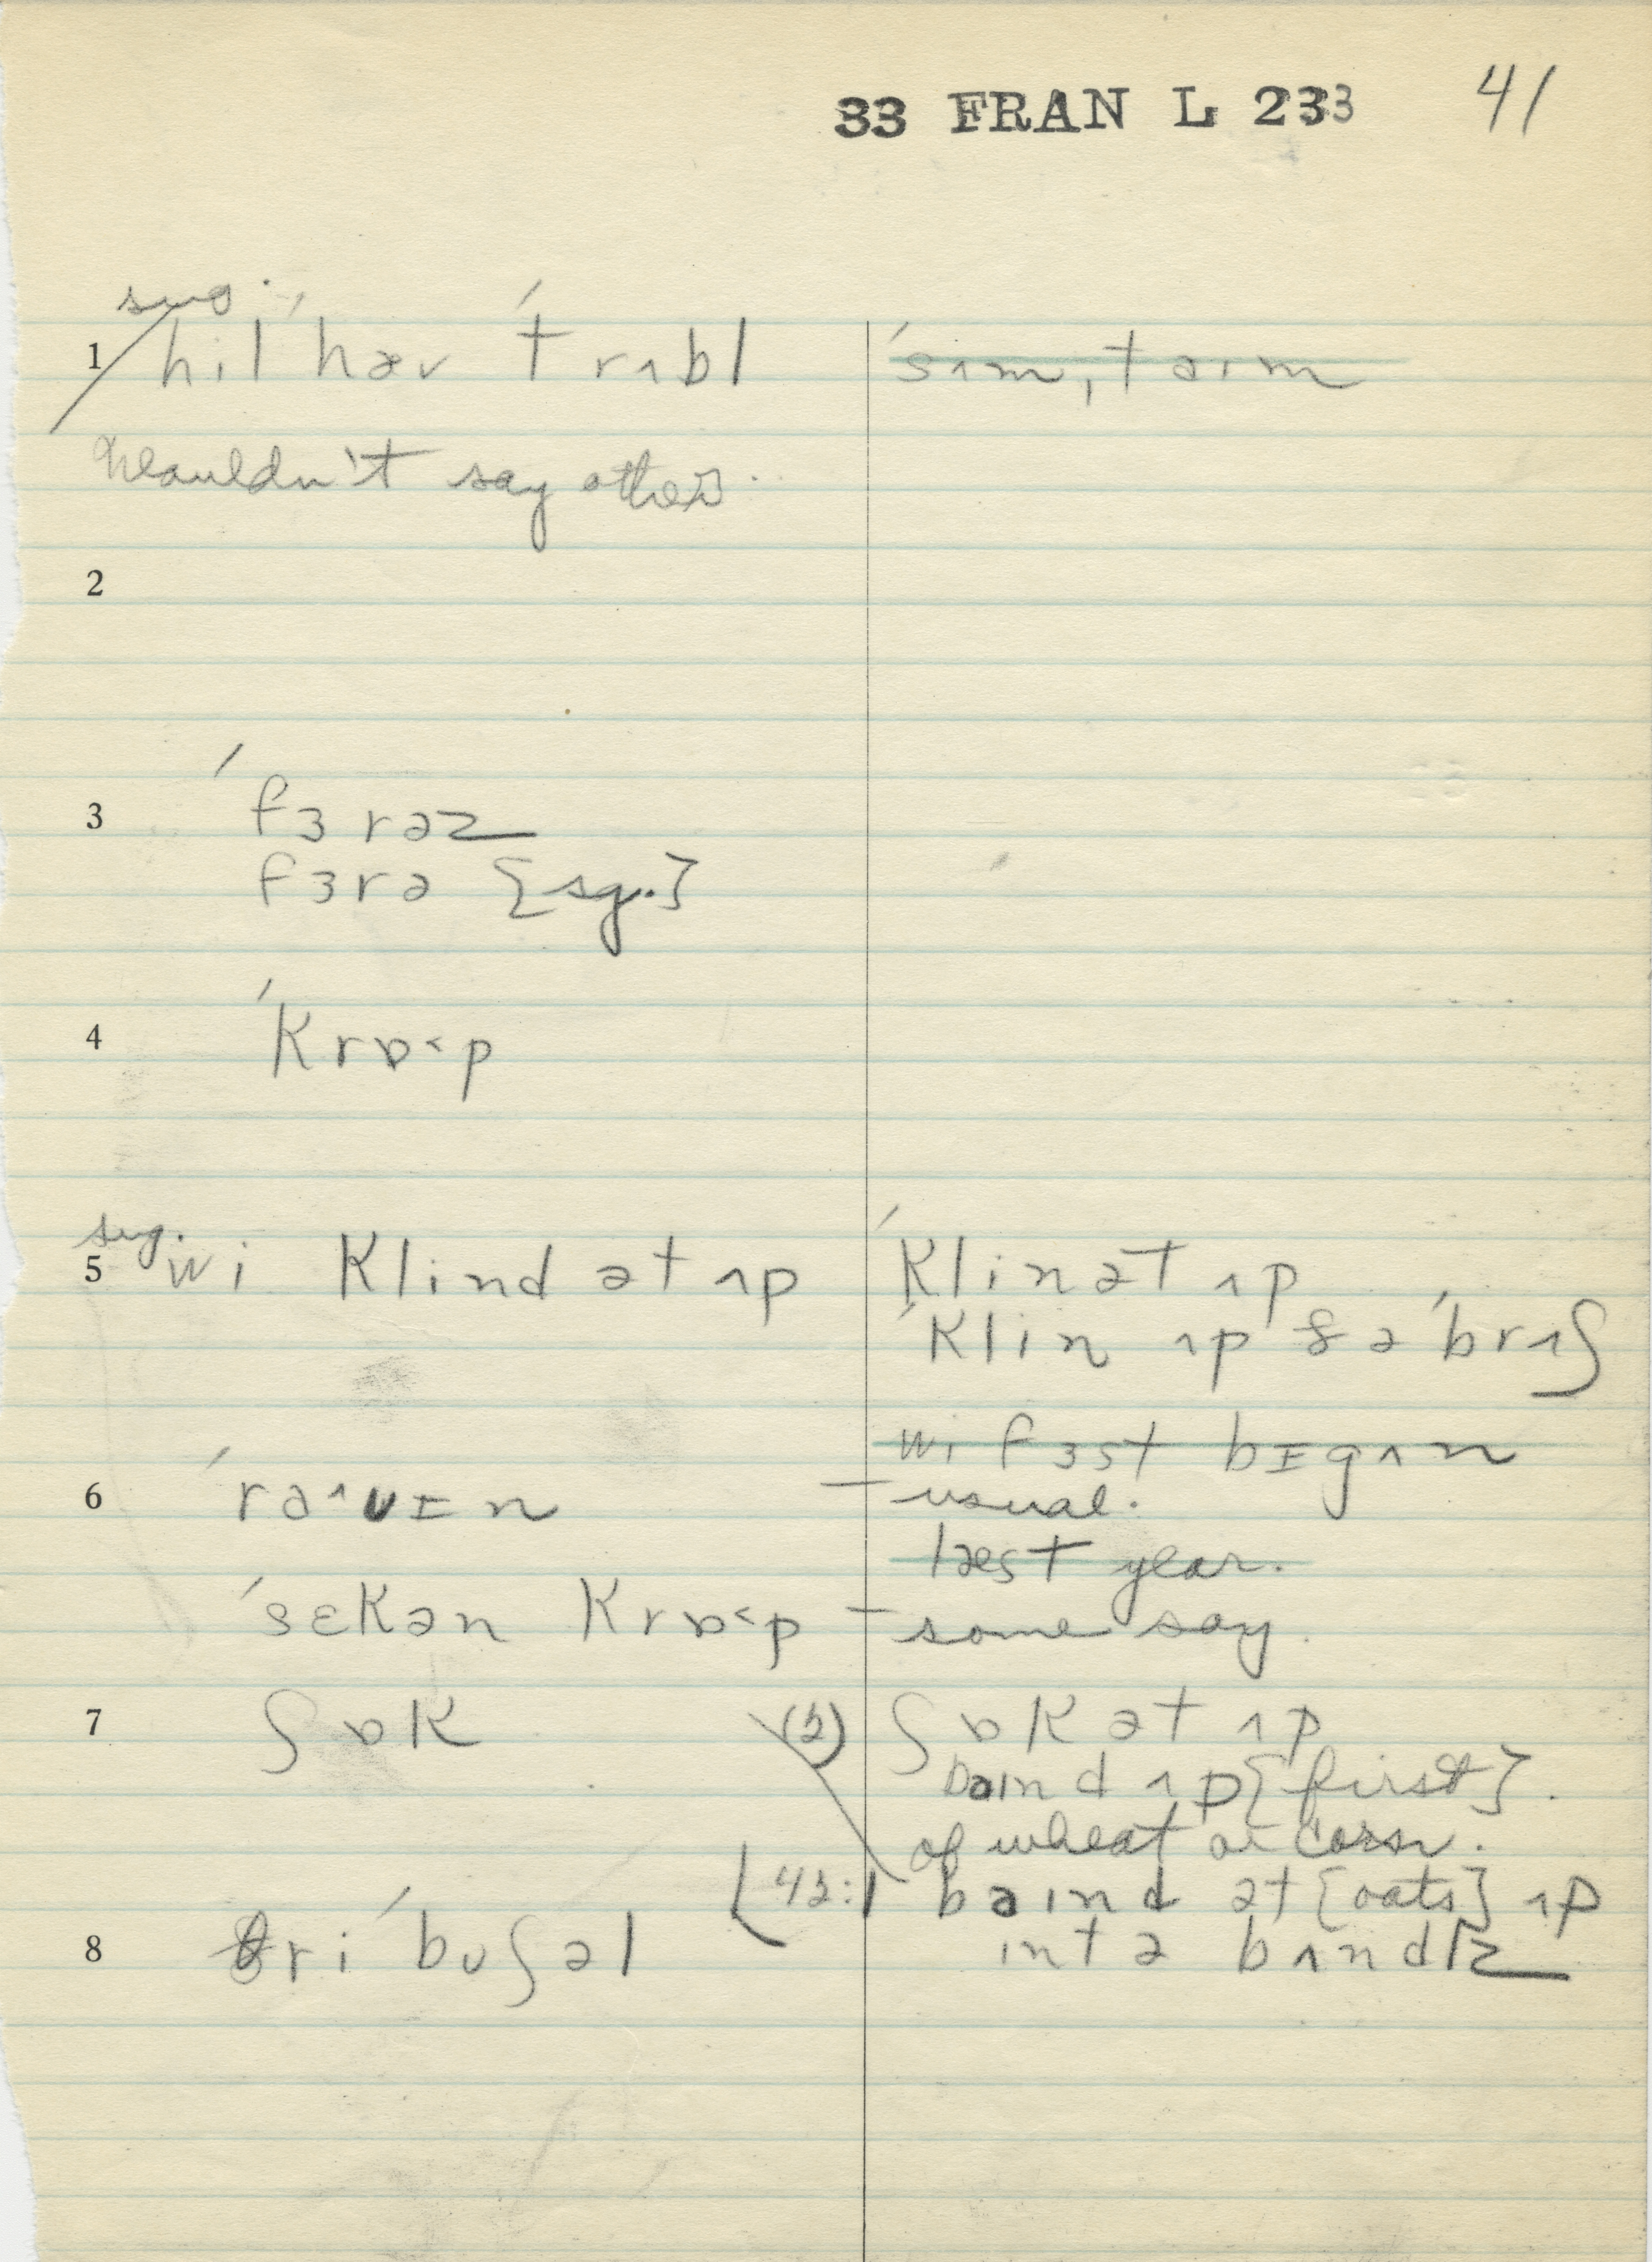 33 FRAN L 233 41
sug.
1 hil ˈhæv ˈtrʌbl
ˈsʌmˌtaɪm
wouldn't say others.
2
3 ˈfɜrəz
fɜrə [sg.]
4 ˈkrɒ˂p
sug.
5 wi klind ət ʌp
ˈklin ət ʌp
ˈklin ʌp ðə ˈbrʌʃ
wi fɜst bɪgʌn
6 ˈra˄ʊɪn – usual.
læst year.
ˈsɛkən krɒ˂p – some say.
7 ʃɒk
(2) ʃɒk ət ʌp
baɪnd ʌp [first].
of wheat or corn.
[42:1 baɪnd ət [oats] ʌp
ɪntə bʌndlz
8 θri ˈbʊʃəl